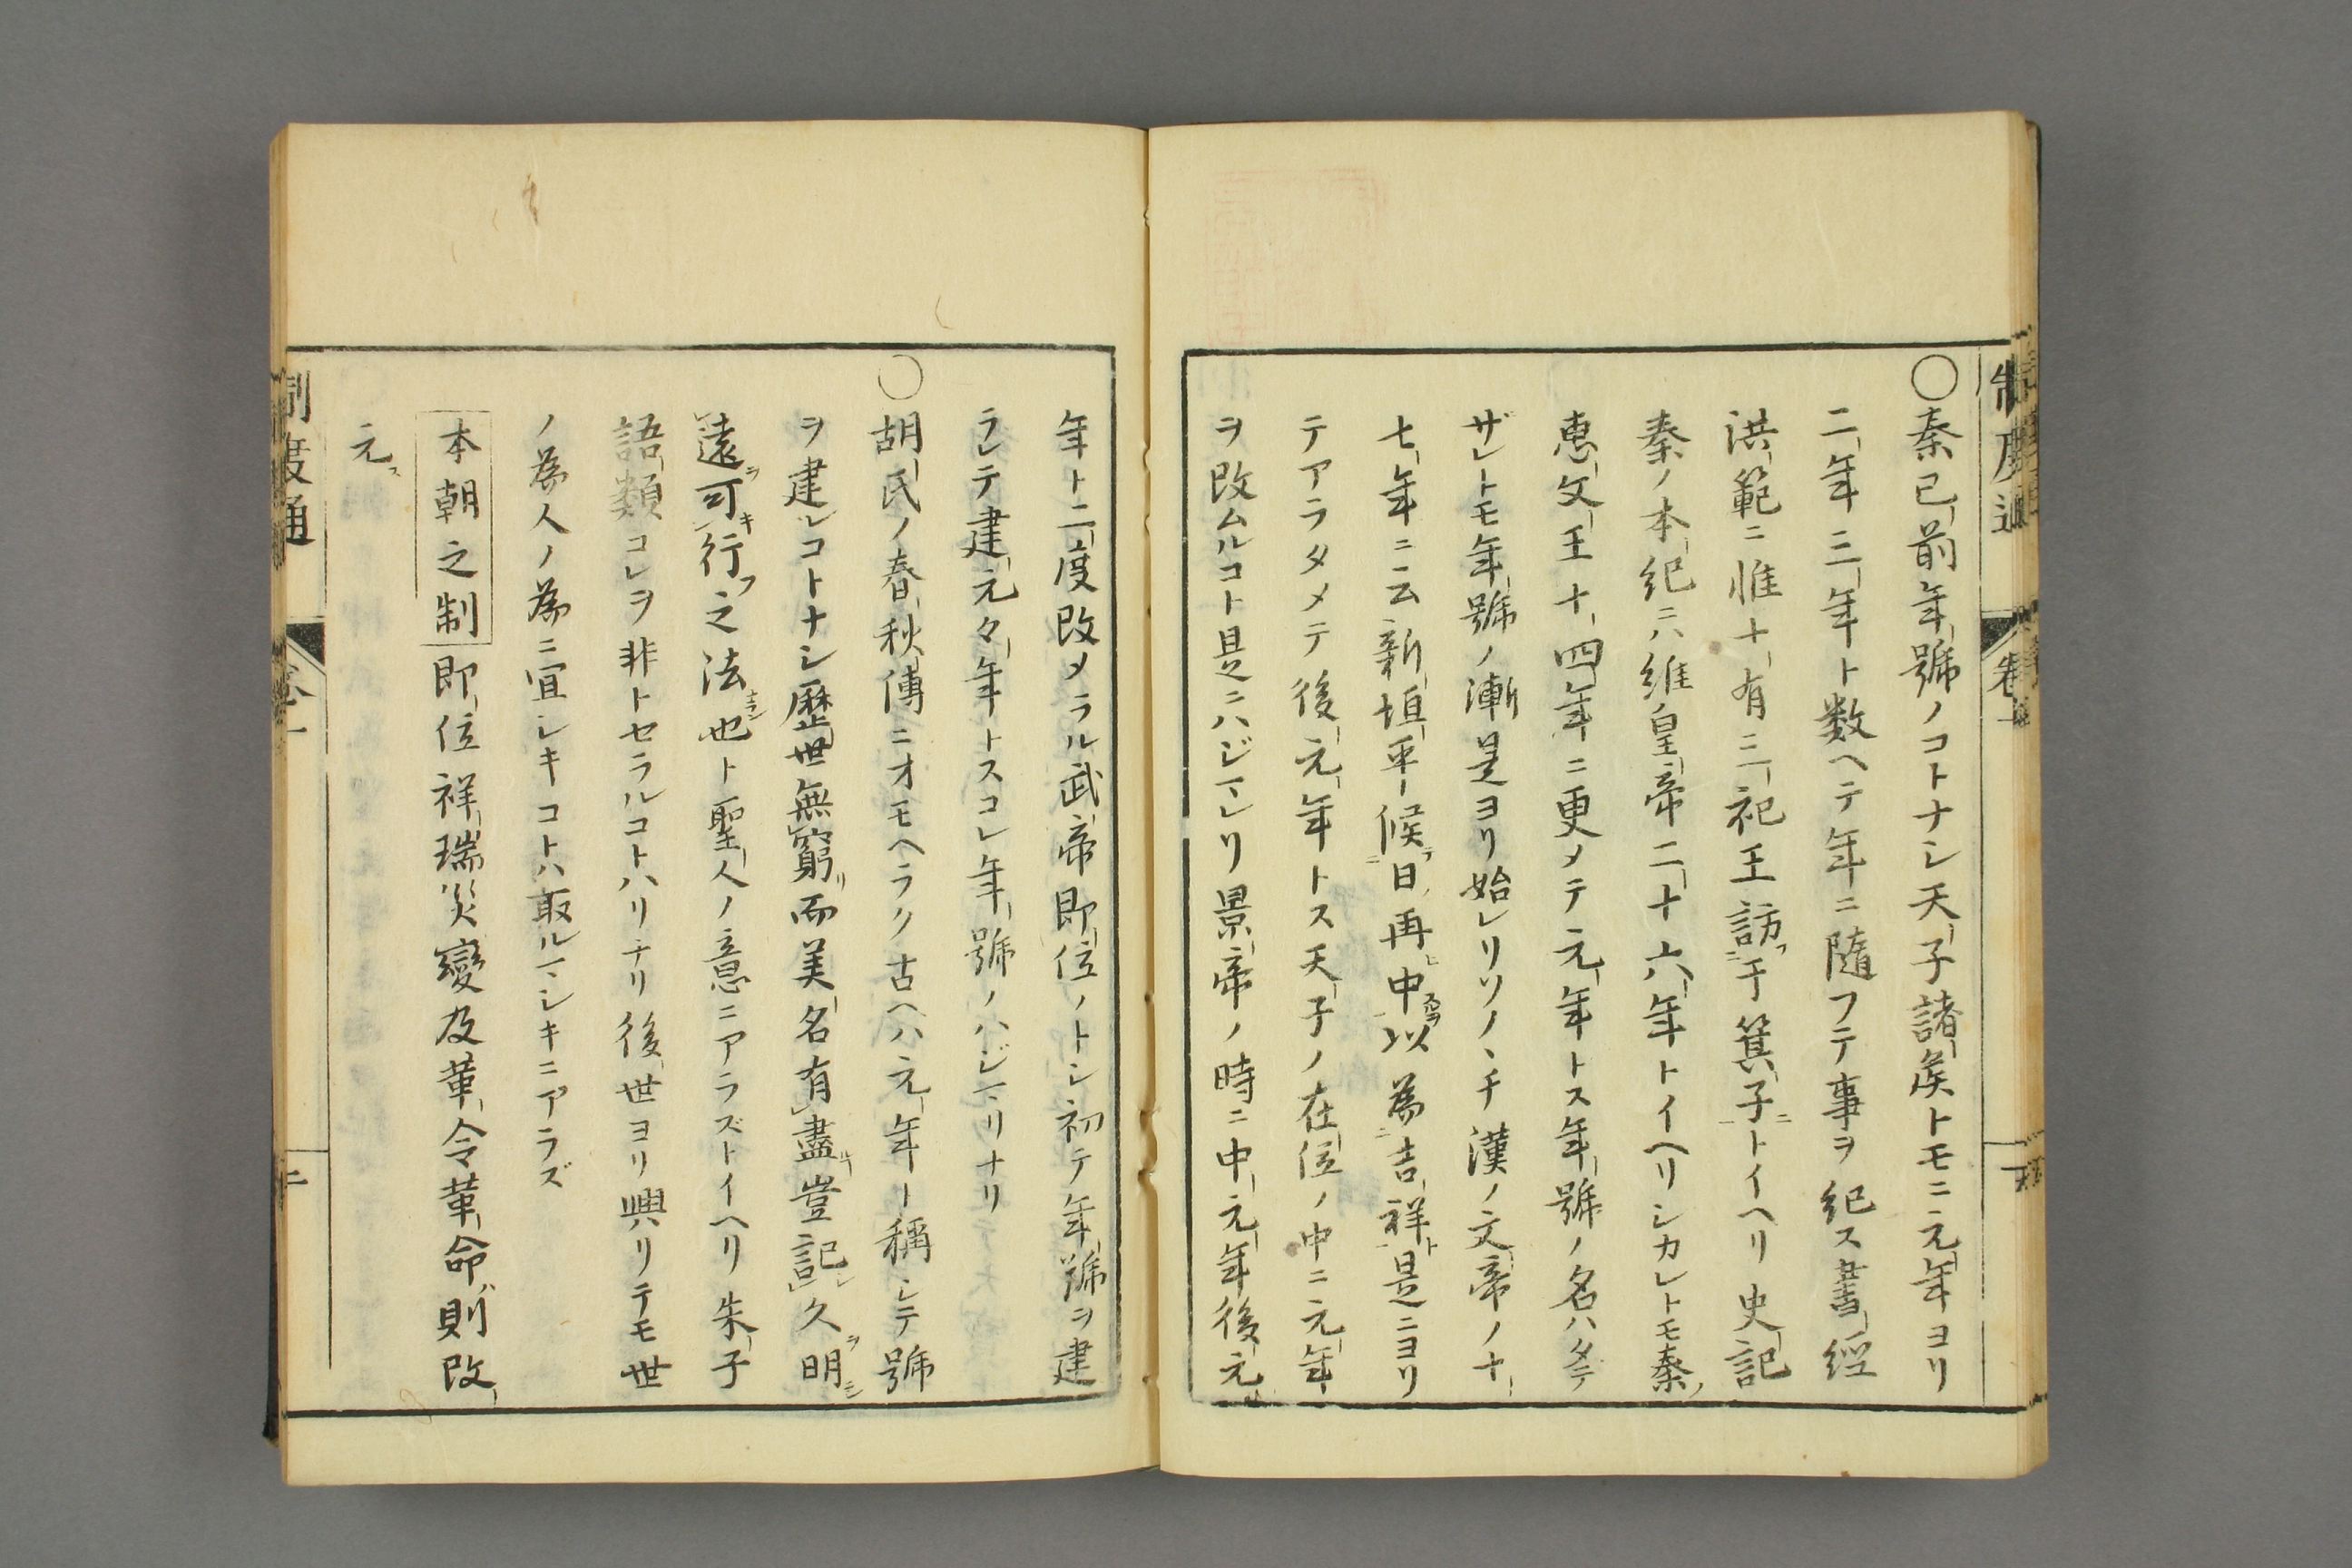 制度通
卷一
○秦已前年號ノコトナシ天子諸侯トモニ元年ヨリ
二年三年ト数ヘテ年ニ隨フテ事ヲ紀ス書經
洪範ニ惟十有三祀王訪フ二于箕子ニ一トイヘリ史記
秦ノ本紀ニハ維皇帝二十六年トイヘリシカレトモ秦ノ
惠文王十四年ニ更メテ元年トス年號ノ名ハタテ
ザレトモ年號ノ漸是ヨリ始レリソノヽチ漢ノ文帝ノ十
七年ニ云新垣平候フニ日再中以為ニ吉祥ト一是ニヨリ
テアラタメテ後元年トス天子ノ在位ノ中ニ元年
ヲ改ムルコト是ニハジマレリ景帝ノ時ニ中元年後元
年ト二度改メラル武帝即位ノトシ初テ年號ヲ建
ラレテ建元々年トスコレ年號ノハジマリナリ
○胡氏ノ春秋傳ニオモヘラク古ヘハ元年ト稱シテ號
ヲ建レコトナシ歷世無窮リ而美名有盡ルヿ豈記レ久ヲ明ニシ
遠ヲ可キレ行フ之法ナラン也ト聖人ノ意ニアラズトイヘリ朱子
語類コレヲ非トセラルコトハリナリ後世ヨリ興リテモ世
ノ為人ノ為ニ宜シキコトハ取ルマシキニアラズ
本朝之制 即位祥瑞災變及革令革命バ則改
元ヲ
制度通
卷一